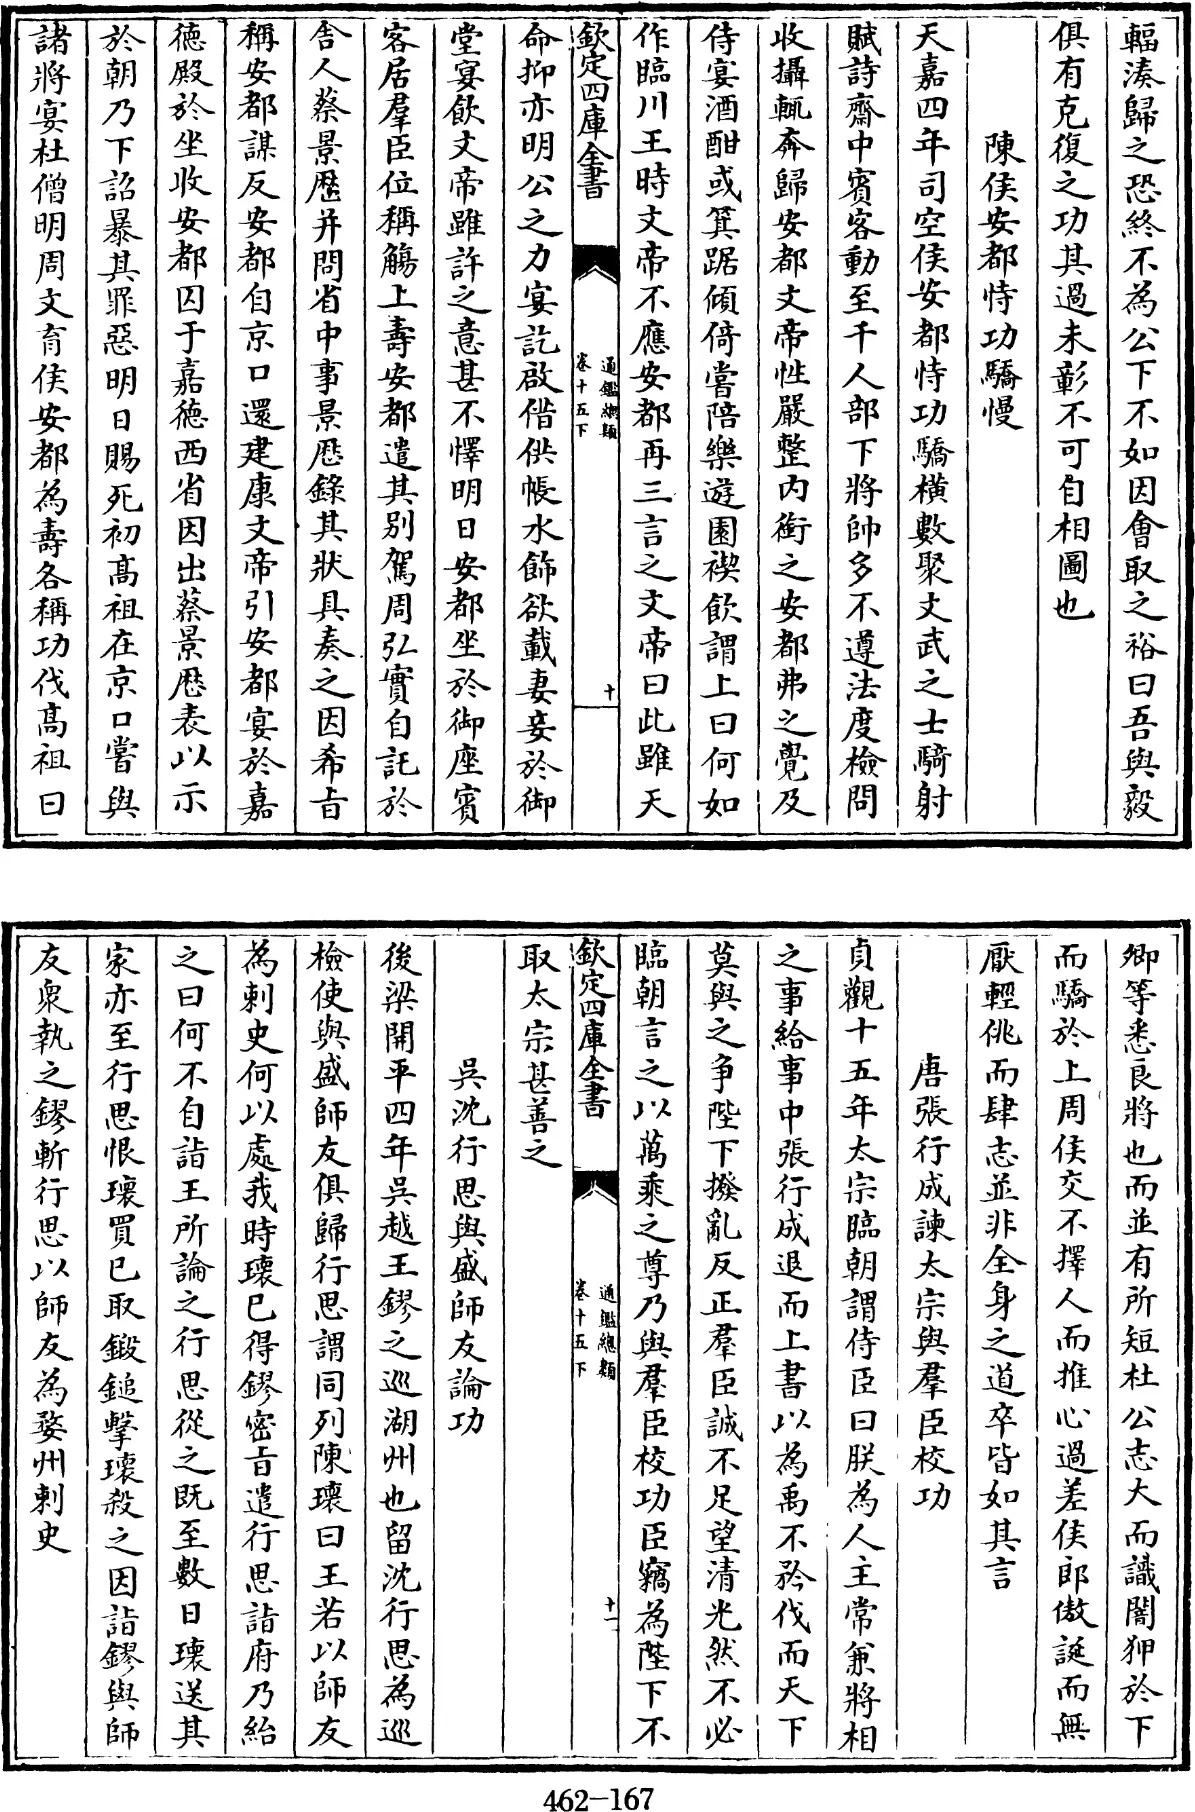 輻湊歸之恐終不為公下不如因會取之裕曰吾與毅
俱有克復之功其過未彰不可自相圖也
陳侯安都恃功驕慢
天嘉四年司空侯安都恃功驕橫數聚文武之士騎射
賦詩齋中賓客動至千人部下將帥多不遵法度檢問
收攝輒奔歸安都文帝性嚴整内銜之安都弗之覺及
侍宴酒酣或箕踞傾倚嘗陪樂遊園禊飲謂上曰何如
作臨川王時文帝不應安都再三言之文帝曰此雖天
欽定四庫全書
通鑑總類
卷十五下
十
命抑亦明公之力宴訖啟借供帳水飾欲載妻妾於御
堂宴飲文帝雖許之意甚不懌明日安都坐於御座賓
客居羣臣位稱觴上壽安都遣其别駕周弘實自託於
舍人蔡景厯并問省中事景厯錄其狀具奏之因希旨
稱安都謀反安都自京口還建康文帝引安都宴於嘉
德殿於坐收安都囚于嘉德西省因出蔡景厯表以示
於朝乃下詔暴其罪惡明日賜死初髙祖在京口嘗與
諸將宴杜僧明周文育侯安都為壽各稱功伐髙祖曰
卿等悉良將也而並有所短杜公志大而識闇狎於下
而驕於上周侯交不擇人而推心過差侯郎傲誕而無
厭輕佻而肆志並非全身之道卒皆如其言
唐張行成諫太宗與羣臣校功
貞觀十五年太宗臨朝謂侍臣曰朕為人主常兼將相
之事給事中張行成退而上書以為禹不矜伐而天下
莫與之争陛下撥亂反正羣臣誠不足望清光然不必
臨朝言之以萬乘之尊乃與羣臣校功臣竊為陛下不
欽定四庫全書
通鑑總類
卷十五下
十一
取太宗甚善之
吳沈行思與盛師友論功
後梁開平四年吳越王鏐之巡湖州也留沈行思為巡
檢使與盛師友俱歸行思謂同列陳瓌曰王若以師友
為刺史何以處我時瓌已得鏐密旨遣行思詣府乃紿
之曰何不自詣王所論之行思從之既至數日瓌送其
家亦至行思恨瓌買已取鍛鎚擊瓌殺之因詣鏐與師
友衆執之鏐斬行思以師友為婺州刺史
462-167